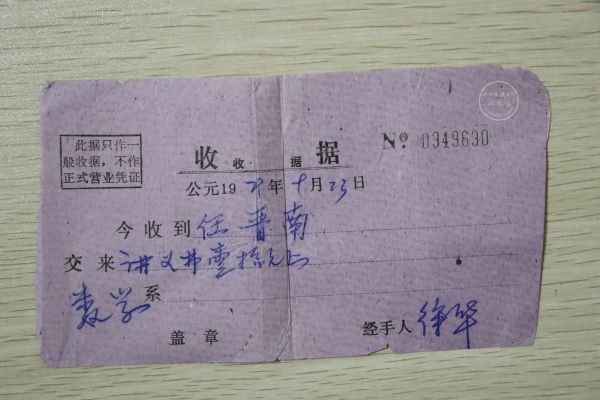 此据只作一
般收据，不作
正式营业凭证
收收据据
Nº 0349630
公元1979年十月23日
今收到任晋南
交来讲义费壹拾元正
数学系
盖章 经手人徐华